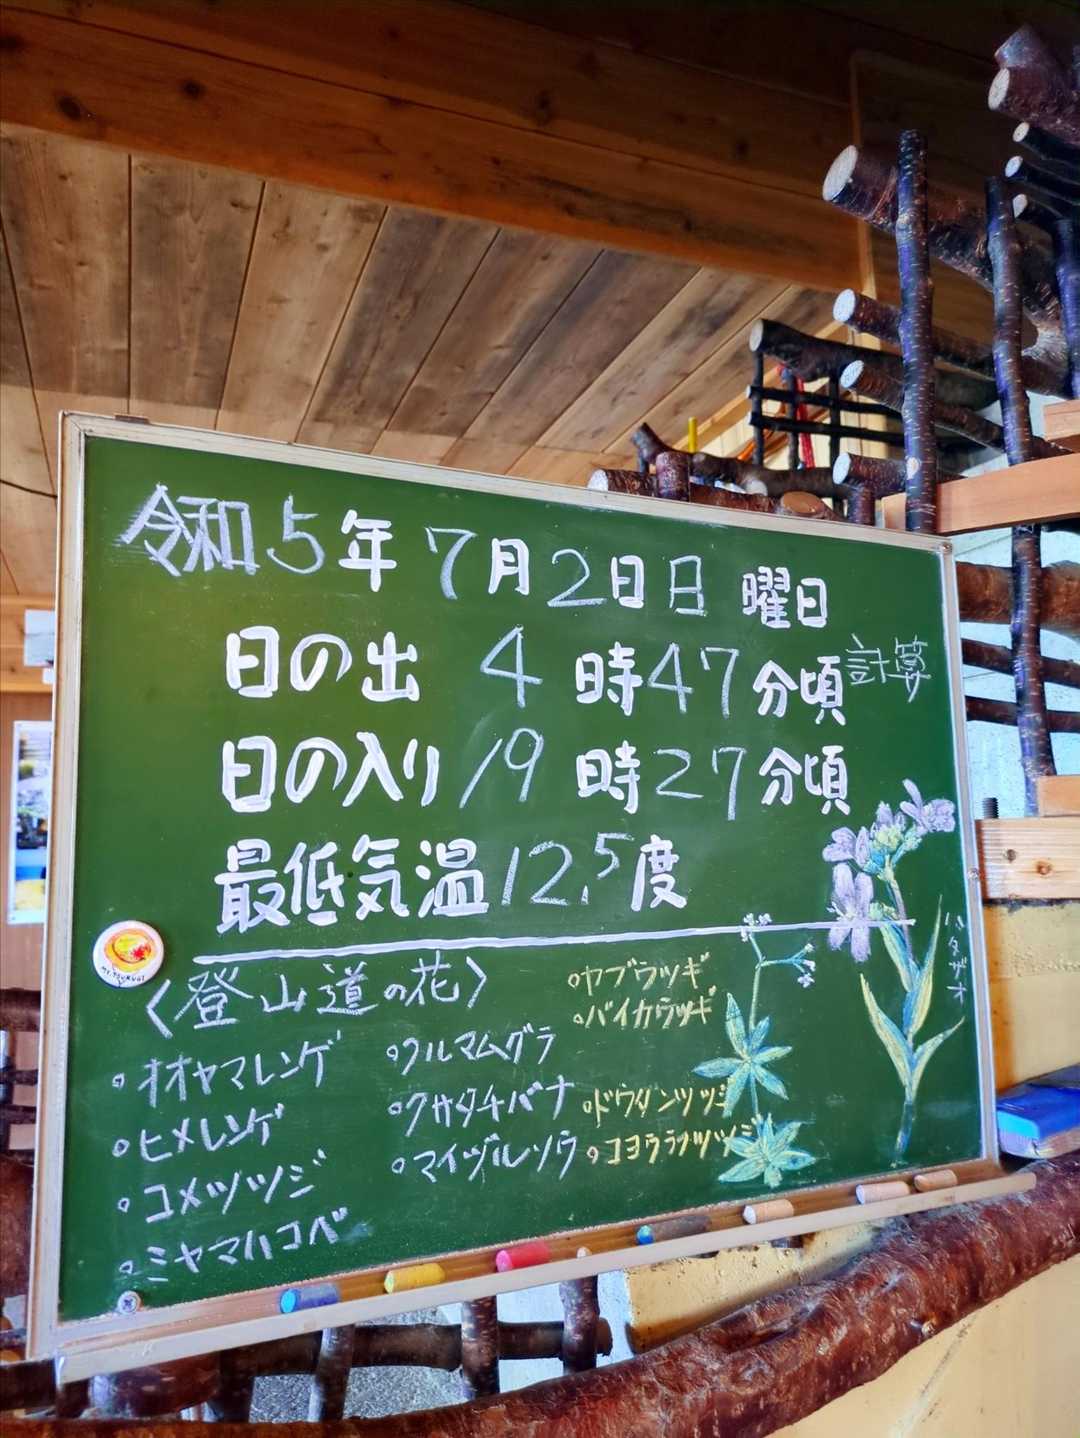 令和5年7月2日日曜日
日の出 4時47分頃 計算
日の入り 19時27分頃
最低気温 12.5度
〈登山道の花〉
。オオヤマレンゲ
。ヒメレンゲ
。コメツツジ
。ミヤマハコベ
。クルマムグラ
。クサタチバナ
。マイヅルソウ
。ヤブウツギ
。バイカウツギ
。ドウダンツツジ
。コヨウラクツツジ
ハタザオ
MT.TSURUGI